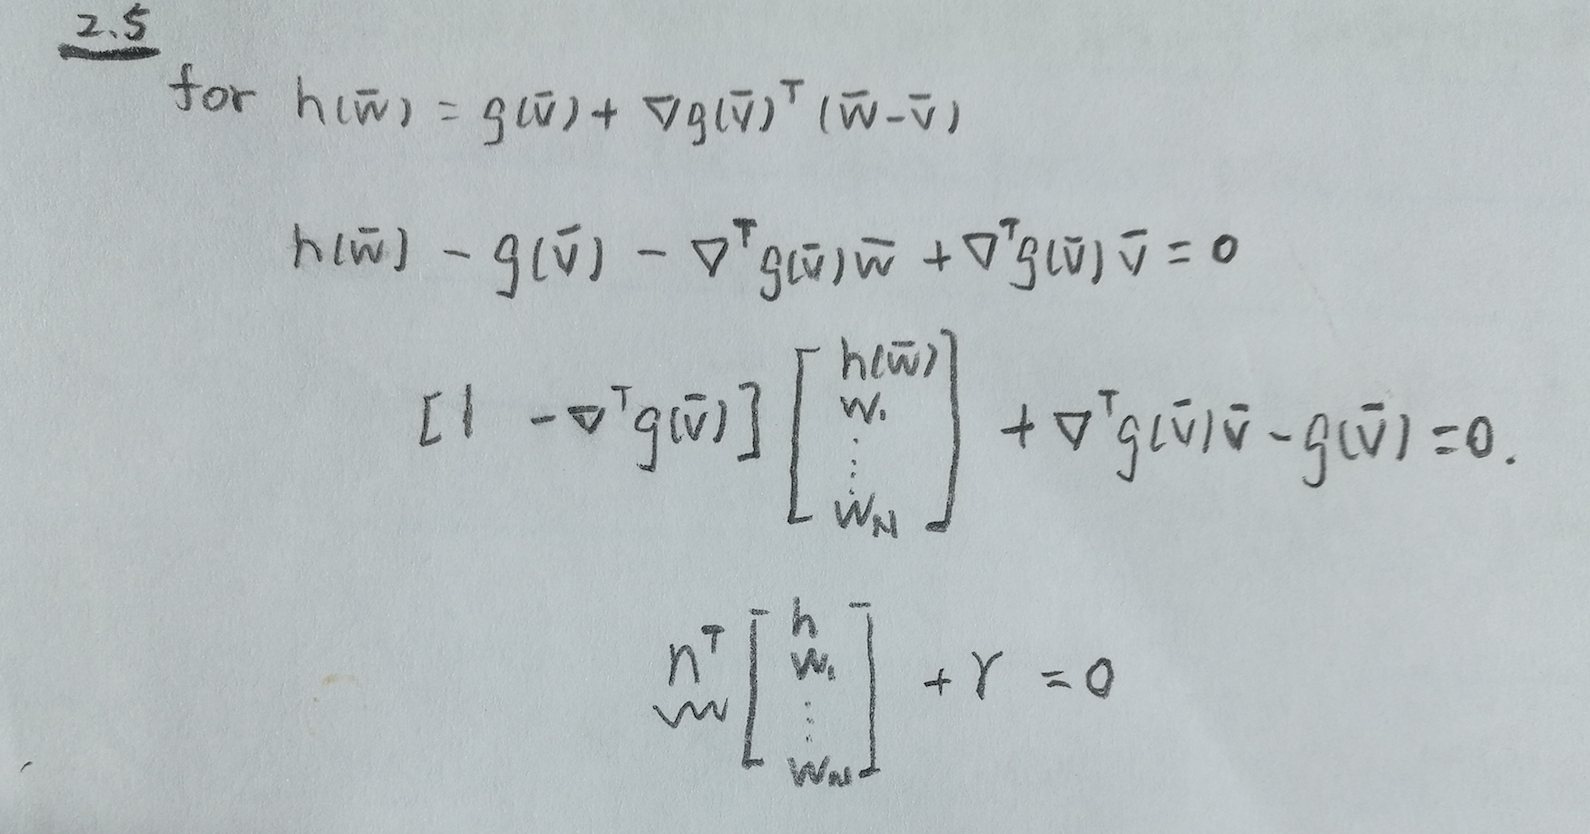 2.5
for h(w̄) = g(v̄) + ∇g(v̄)ᵀ (w̄ - v̄)
h(w̄) - g(v̄) - ∇ᵀg(v̄)w̄ + ∇ᵀg(v̄)v̄ = 0
[1 -∇ᵀg(v̄)] [h(w̄) w₁ ⋮ w_N] + ∇ᵀg(v̄)v̄ - g(v̄) = 0.
nᵀ [h w₁ ⋮ w_N] + r = 0